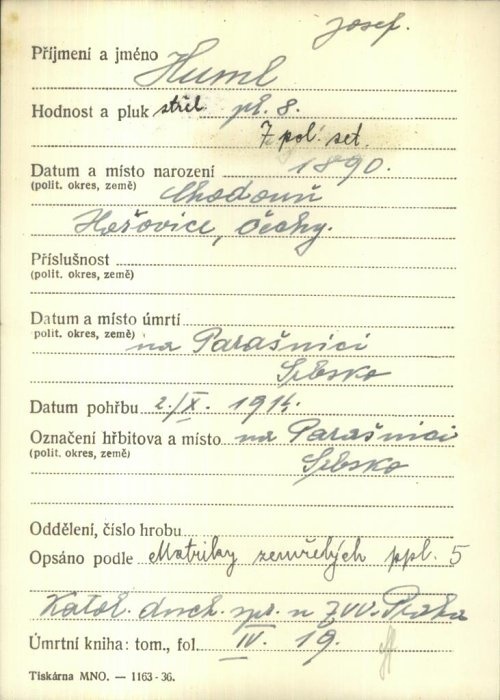 Josef.
Příjmení a jméno Huml
Hodnost a pluk střel. pl. 8.
7 pol. set.
Datum a místo narození 1890.
(polit. okres, země) Chodouň
Hořovice, Čechy.
Příslušnost
(polit. okres, země)
Datum a místo úmrtí
polit. okres, země) na Parašnici
Srbsko
Datum pohřbu 2./X. 1914.
Označení hřbitova a místo na Parašnici
(polit. okres, země)
Srbsko
Oddělení, číslo hrobu
Opsáno podle Matriky zemřelých ppl. 5
Katol. duch. spr. u ZVV. Praha
Úmrtní kniha: tom., fol. IV. 19.
Tiskárna MNO. — 1163-36.